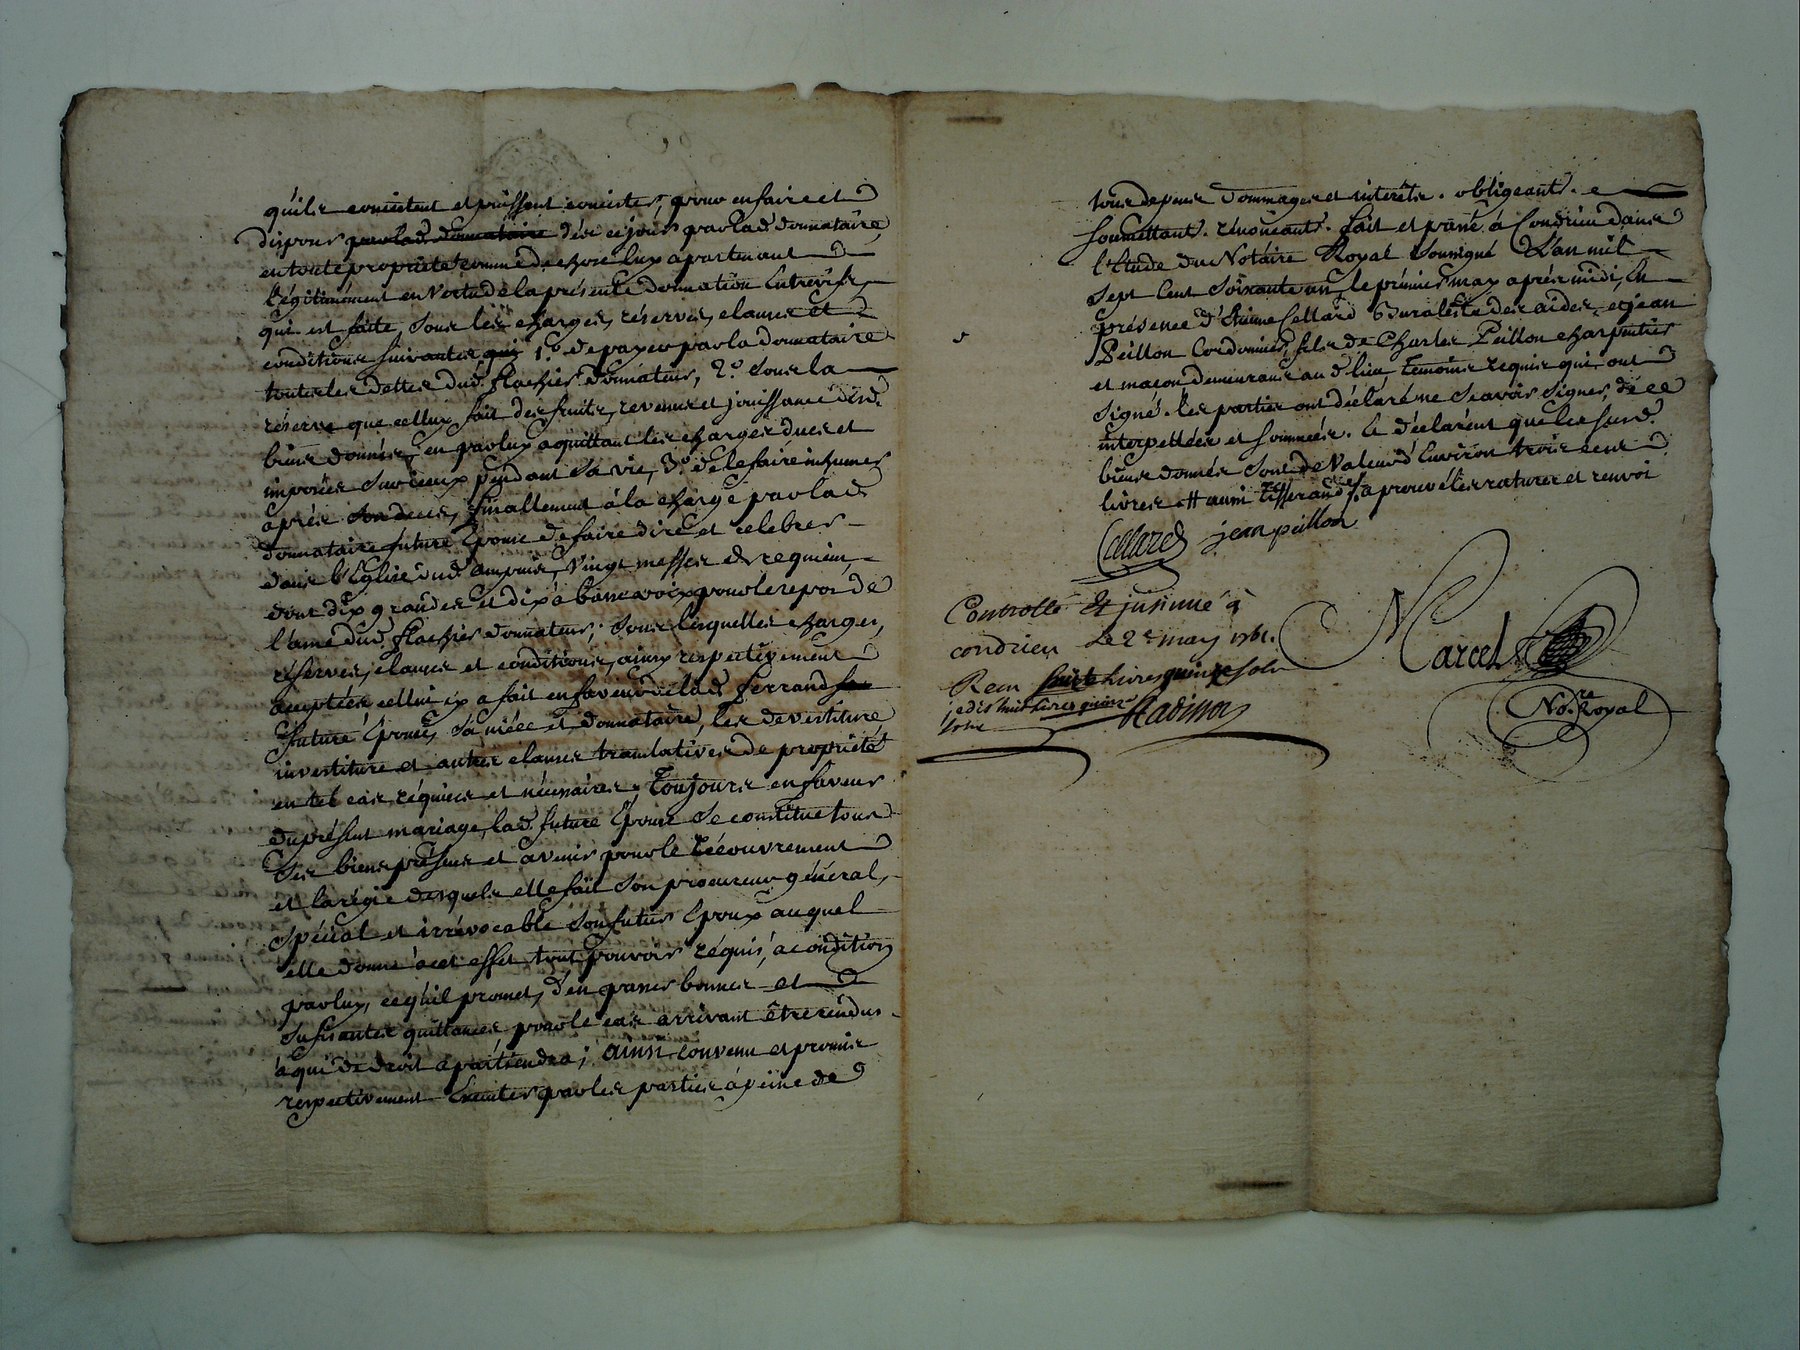 qu'ils consistent et puissent consister, pour en faire et
disposer par lad. donnataire dès ce jour par lad. donnataire,
en toute propriété comme de chose luy apartenant
légitimement en vertu de la présente donnation entrevifs,
qui est faitte, sous les charges, réserves, clauses et
conditions suivantes qui 1.º de payer par la donnataire
toutes les dettes dud. flachier donnateur, 2.º sous la
réserve que celluy fait des fruits, revenus et jouissance desd.
biens donnés, en par luy aquittant les charges dues et
imposées sur iceux pendant sa vie, 3.º de le faire inhumer
après son deces, finallement à la charge par lad.
donnataire future Epouse de faire dire et celebrer
dans l'Eglise dud. ampuis, vingt messes de requiem,
dont dix grandes et dix à basse voix pour le repos de
l'ame dud. flachier donnateur; sous lesquelles charges,
réserves, clauses et conditions, ainsy respectivement
acceptées celluicy a fait en faveur de lad. ferrand sa
future Epouse, sa niéce et donnataire, les devestiture
investiture et autres clauses translatives de propriété
en tel cas requises et nécessaires; Toujours en faveur
du présent mariage, lad. future Epouse se constitue tous
ses biens présens et avenir pour le recouvrement
et la régie desquels elle fait son procureur général,
spécial et irrévocable son futur Epoux auquel
elle donne à cet effet tout pouvoir réquis, a condition
par luy, ce qu'il promet, d'en passer bonnes et
sufisantes quittances, pour le cas arrivant être rendus
à qui de droit apartiendra; ainsi convenu et promis
respectivement Executer par les parties à peine de
tous depens dommages et interêts. obligeant.
soumettant. rénonceant. fait et passé, à Condrieu dans
l'Etude du Notaire Royal soussigné L'an mil
sept cent soixante un, le prémier may après midi, En
présence d'Etienne Cellard Buraliste des aides, et jean
Peillon Cordonnier, fils de Charles Peillon charpentier
et maçon demeurans aud. lieu, temoins requis qui ont
signé. les parties ont déclaré ne sçavoir signer, de ce
interpellées et sommées. Et déclarent que les susd.
biens donnés sont de valeur d'Environ trois cens
livres # aprouvé les ratures et renvoi
Cellard jean peillon
Controllé Et insinué à
condrieu Le 2e may 1761.
Recu livres quinze sols
Marcel
Nore. Royal